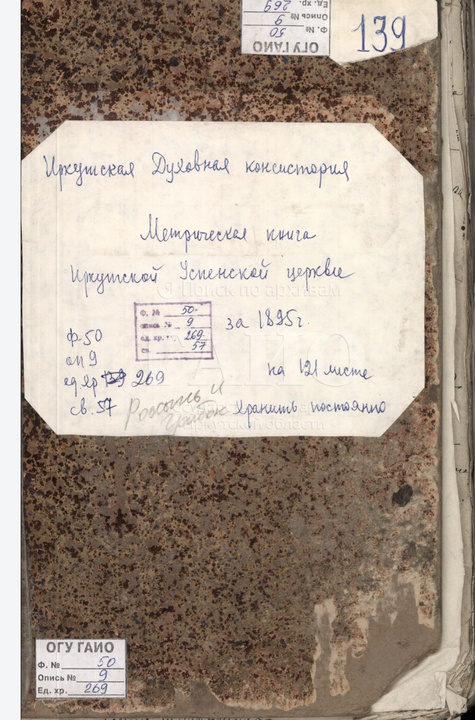 Ед. хр. 269
Опись № 9
Ф. № 50
ОГУ ГАИО
139
Иркутская Духовная консистория
Метрическая книга
Иркутской Успенской церкви
Поиск по архивам
Ф. № 50.
опись № 9
ед. хр. 269.
св. 57
за 1895г.
ф-50
оп 9
ед хр 269
св. 57
на 121 листе
хранить постоянно
Иркутской области
ОГУ ГАИО
Ф. № 50
Опись № 9
Ед. хр. 269